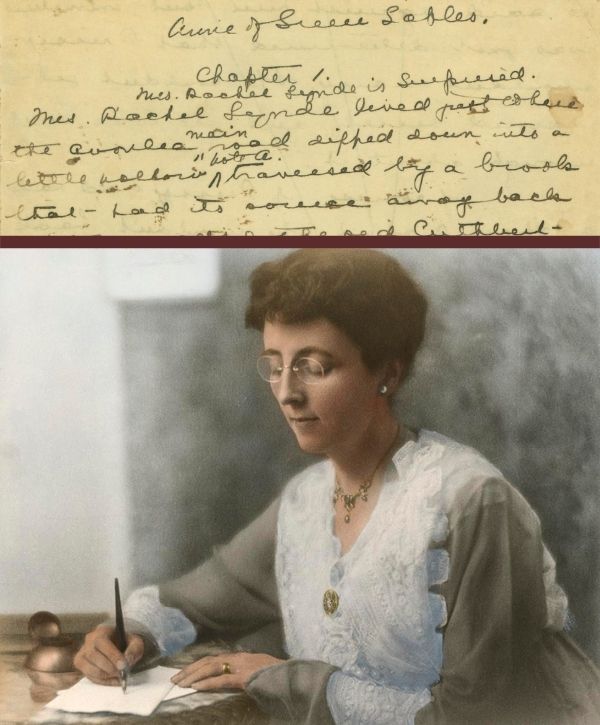 Anne of Green Gables.
Chapter 1.
Mrs. Rachel Lynde is Surprised.
Mrs. Rachel Lynde lived just where
main
the Avonlea road dipped down into a
"Note A."
little hollow traversed by a brook
that had its source away back
the old Cuthbert